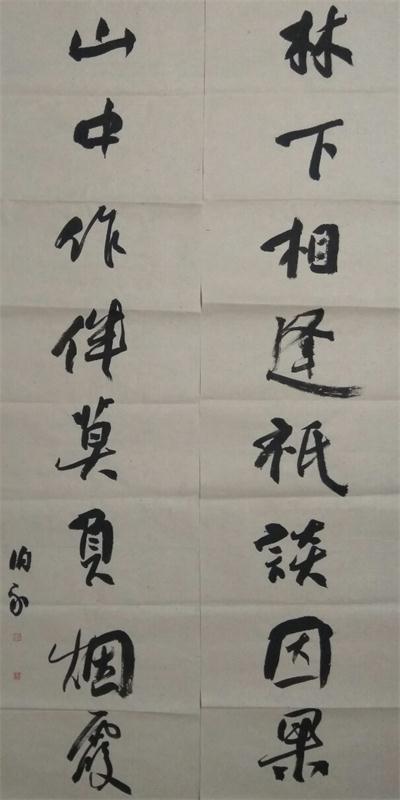 林下相逢祇談因果
山中作伴莫負烟霞